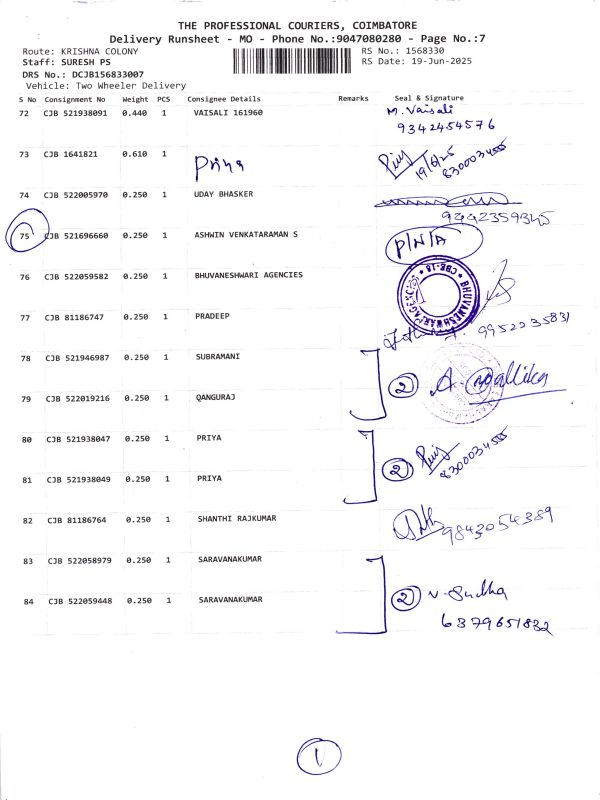 THE PROFESSIONAL COURIERS, COIMBATORE
Delivery Runsheet - MO - Phone No.:9047080280 - Page No.:7
Route: KRISHNA COLONY RS No.: 1568330
Staff: SURESH PS RS Date: 19-Jun-2025
DRS No.: DCJB156833007
Vehicle: Two Wheeler Delivery
S No Consignment No Weight PCS Consignee Details Remarks Seal & Signature
72 CJB 521938091 0.440 1 VAISALI 161960 M. Vaisali
9342454576
73 CJB 1641821 0.610 1 Priya 19/6/25
74 CJB 522005970 0.250 1 UDAY BHASKER
9442359345
75 CJB 521696660 0.250 1 ASHWIN VENKATARAMAN S P/N/A
76 CJB 522059582 0.250 1 BHUVANESHWARI AGENCIES BHUVANESHWARI AGENCIES CBE-18
77 CJB 81186747 0.250 1 PRADEEP 9952235831
78 CJB 521946987 0.250 1 SUBRAMANI
2 A. Mallika
79 CJB 522019216 0.250 1 QANGURAJ
80 CJB 521938047 0.250 1 PRIYA
2
81 CJB 521938049 0.250 1 PRIYA
82 CJB 81186764 0.250 1 SHANTHI RAJKUMAR 9843054389
83 CJB 522058979 0.250 1 SARAVANAKUMAR
2 V. Sudha
84 CJB 522059448 0.250 1 SARAVANAKUMAR
6379651832
1